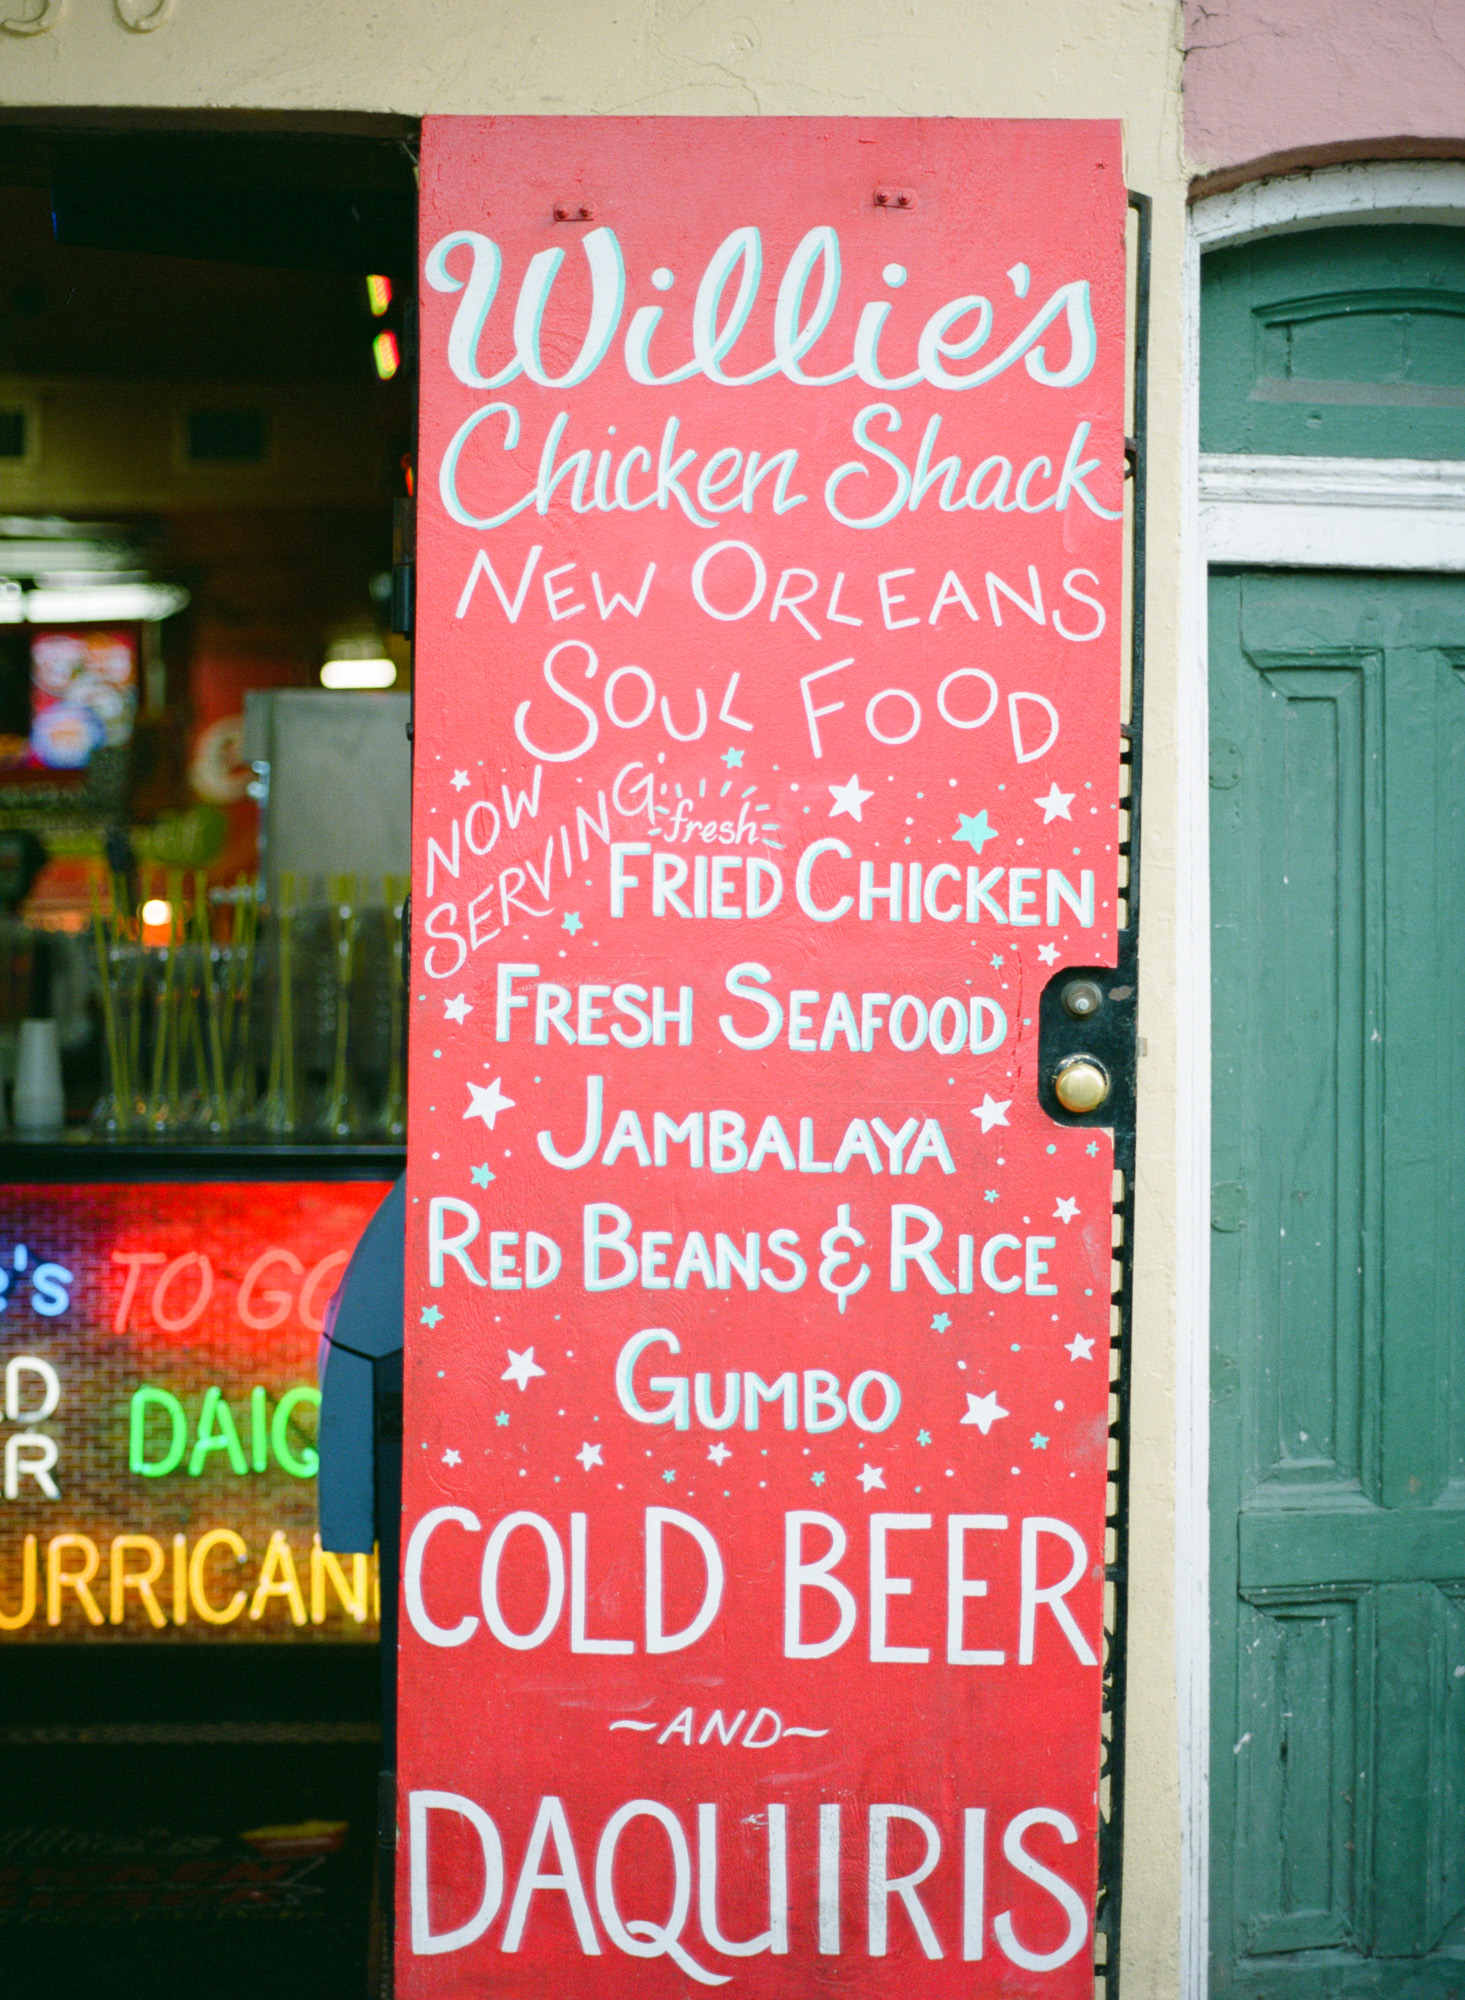 Willie's
Chicken Shack
NEW ORLEANS
SOUL FOOD
NOW
SERVING
fresh
FRIED CHICKEN
FRESH SEAFOOD
JAMBALAYA
RED BEANS & RICE
GUMBO
COLD BEER
~AND~
DAQUIRIS
's TO GO
DAIQ
URRICAN